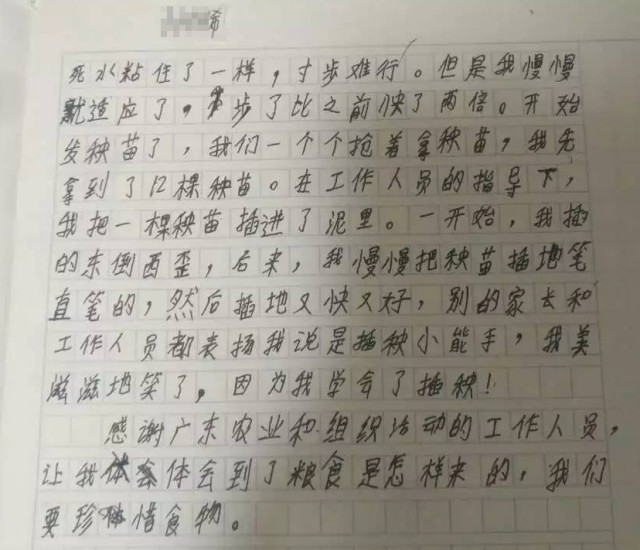 希
死水粘住了一样，寸步难行。但是我慢慢
就适应了，步了比之前快了两倍。开始
发秧苗了，我们一个个抢着拿秧苗，我先
拿到了12棵秧苗。在工作人员的指导下，
我把一棵秧苗插进了泥里。一开始，我插
的东倒西歪，后来，我慢慢把秧苗插地笔
直笔的，然后插地又快又好，别的家长和
工作人员都表扬我说是插秧小能手，我美
滋滋地笑了，因为我学会了插秧！
感谢广东农业和组织活动的工作人员，
让我体会到了粮食是怎样来的，我们
要珍惜食物。